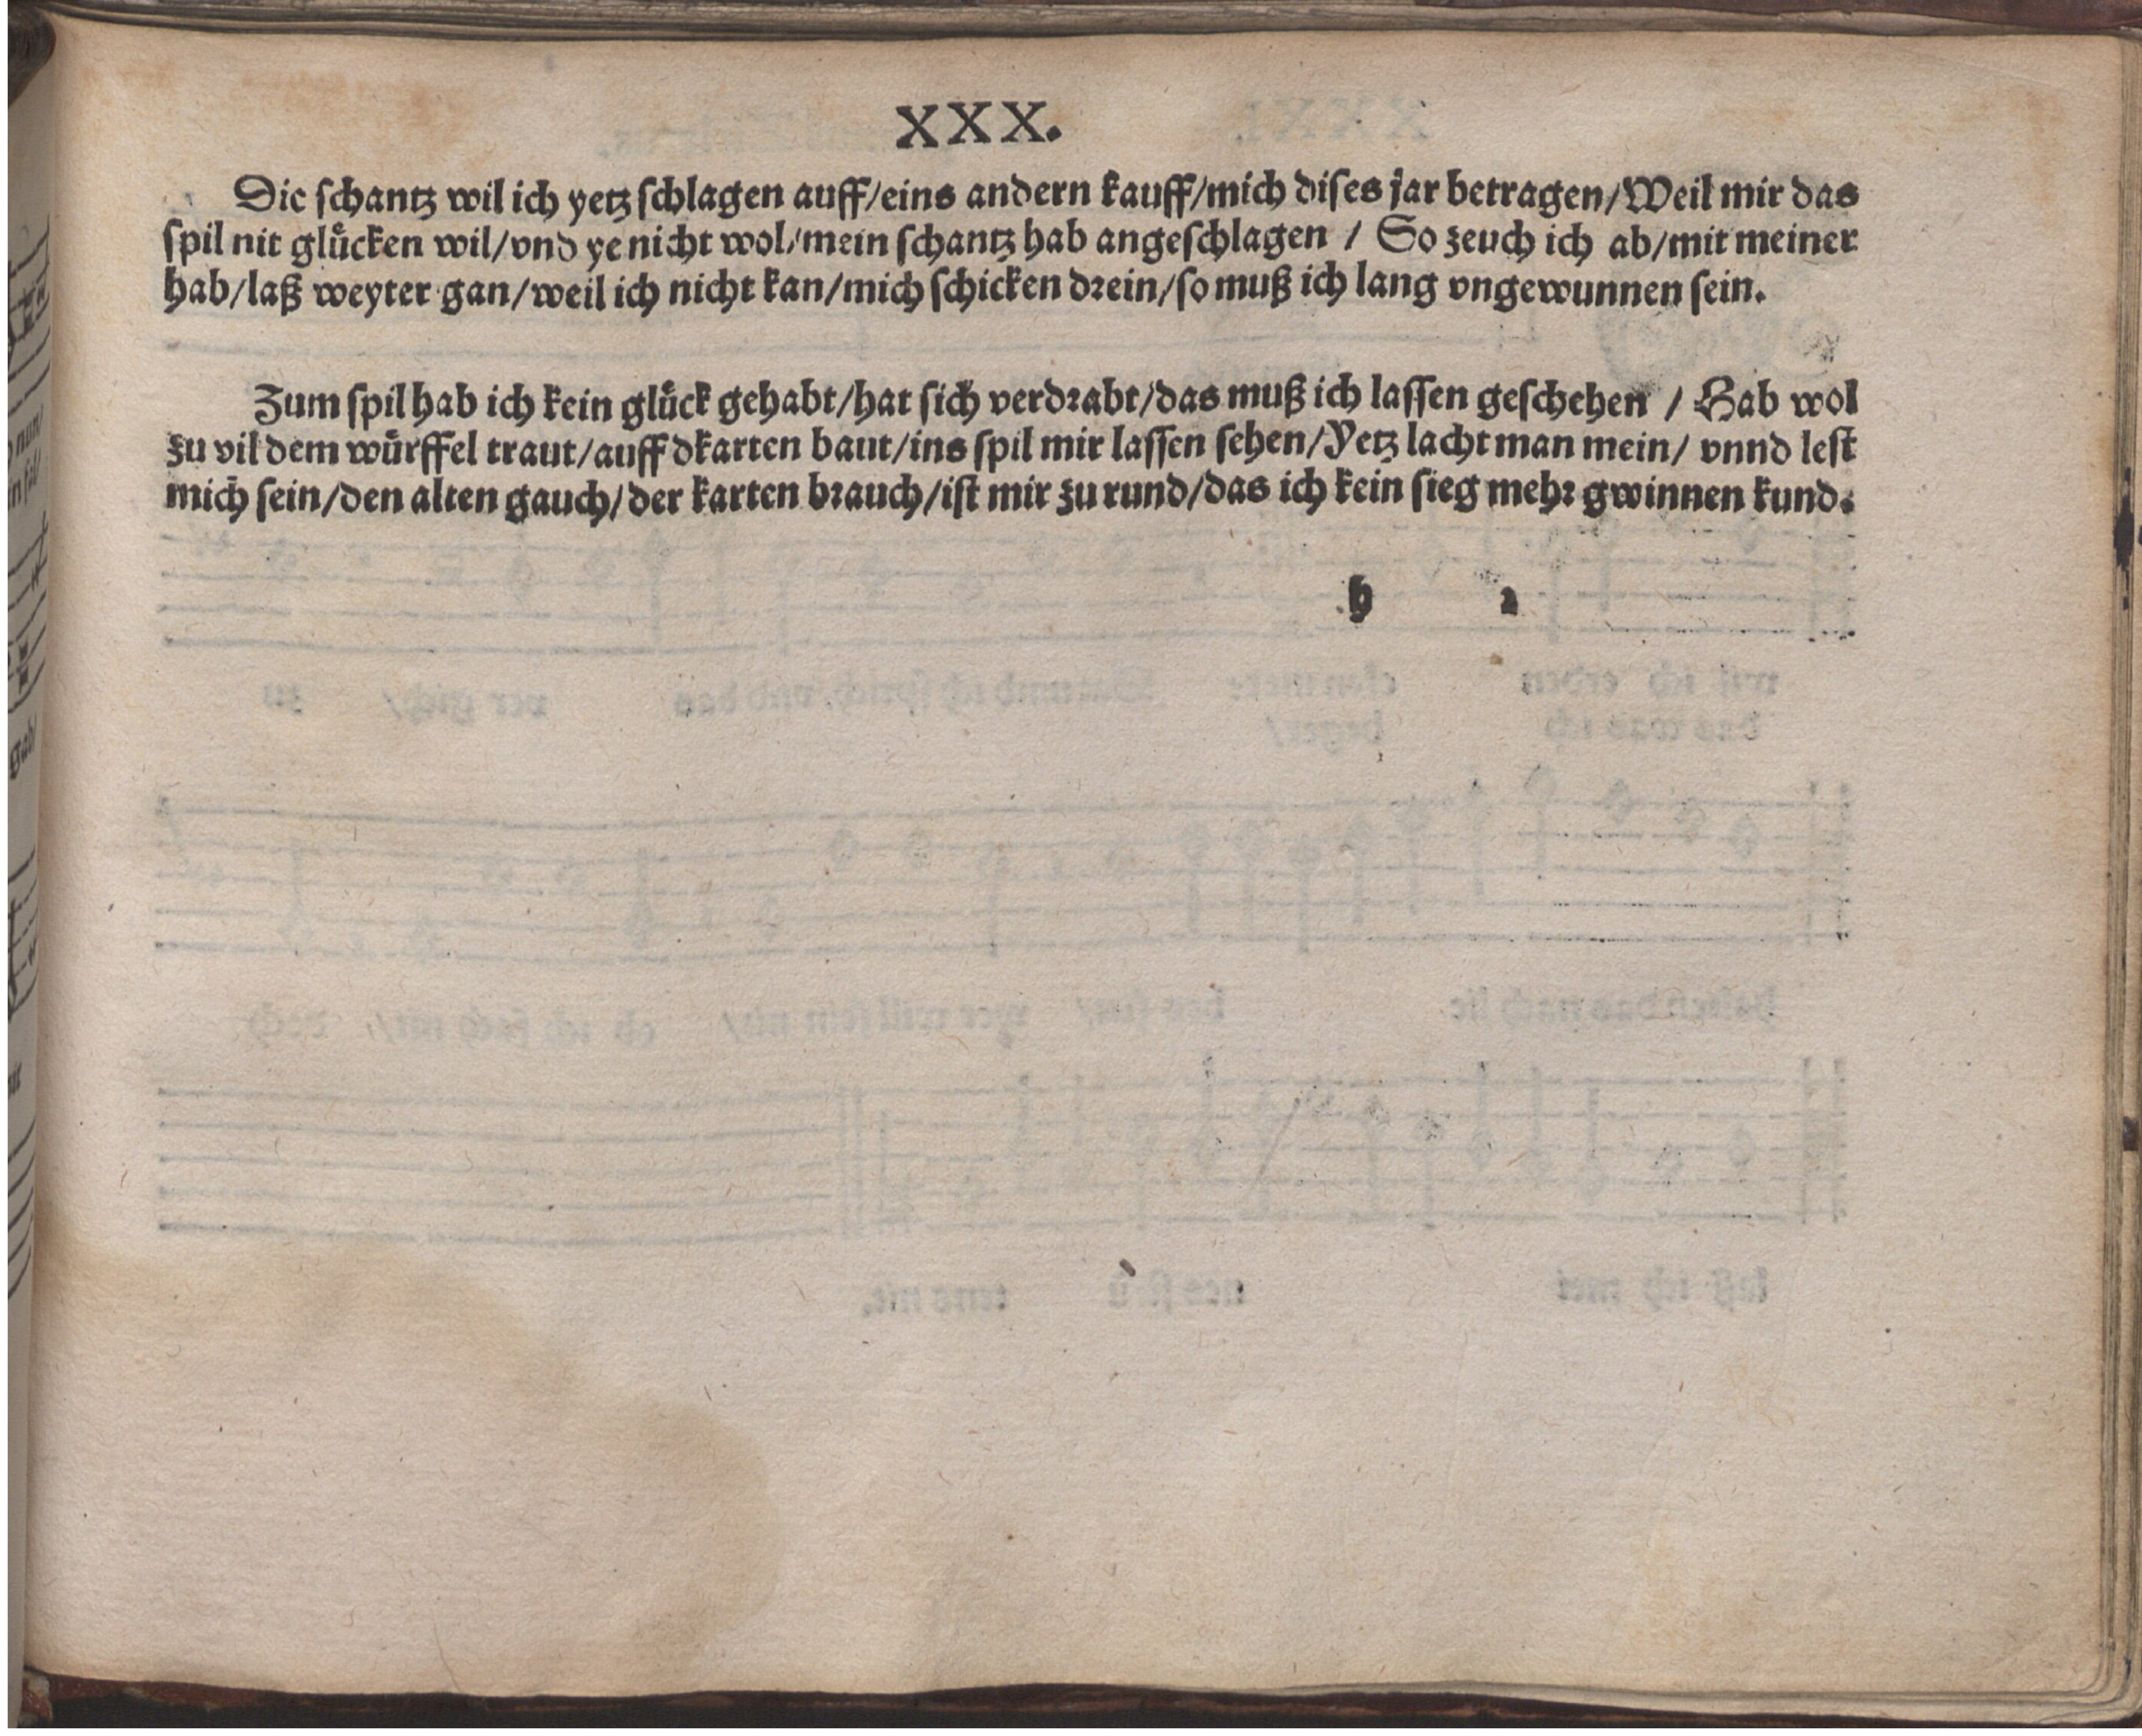 XXX.
Die schantz wil ich yetz schlagen auff/eins andern kauff/mich dises jar betragen/Weil mir das
spil nit glücken wil/vnd ye nicht wol/mein schantz hab angeschlagen / So zeuch ich ab/mit meiner
hab/laß weyter gan/weil ich nicht kan/mich schicken drein/so muß ich lang vngewunnen sein.
Zum spil hab ich kein glück gehabt/hat sich verdrabt/das muß ich lassen geschehen / Hab wol
zu vil dem würffel traut/auff dkarten baut/ins spil mir lassen sehen/Yetz lacht man mein/ vnnd lest
mich sein/den alten gauch/der karten brauch/ist mir zu rund/das ich kein sieg mehr gwinnen kund.
h